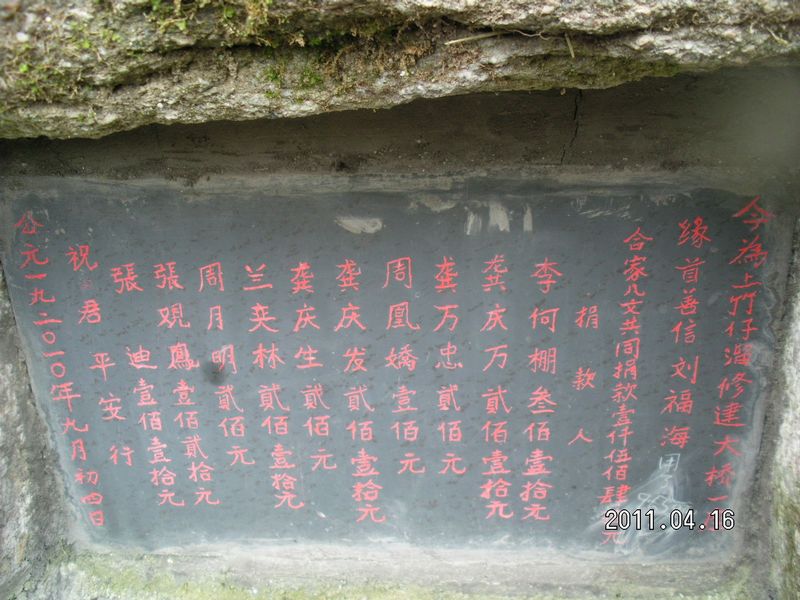 今為上竹仔湽修建大桥一
缘首善信刘福海
合家凡文共同捐款壹仟伍佰肆元
捐款人
李何棚叁佰壹拾元
龚庆万贰佰壹拾元
龚万忠贰佰元
周凰嬌壹佰元
龚庆发贰佰壹拾元
龚庆生贰佰元
兰奕林贰佰壹拾元
周月明贰佰元
張观鳳壹佰贰拾元
張迪壹佰壹拾元
祝君平安行
公元一九二0一0年九月初四日
2011.04.16